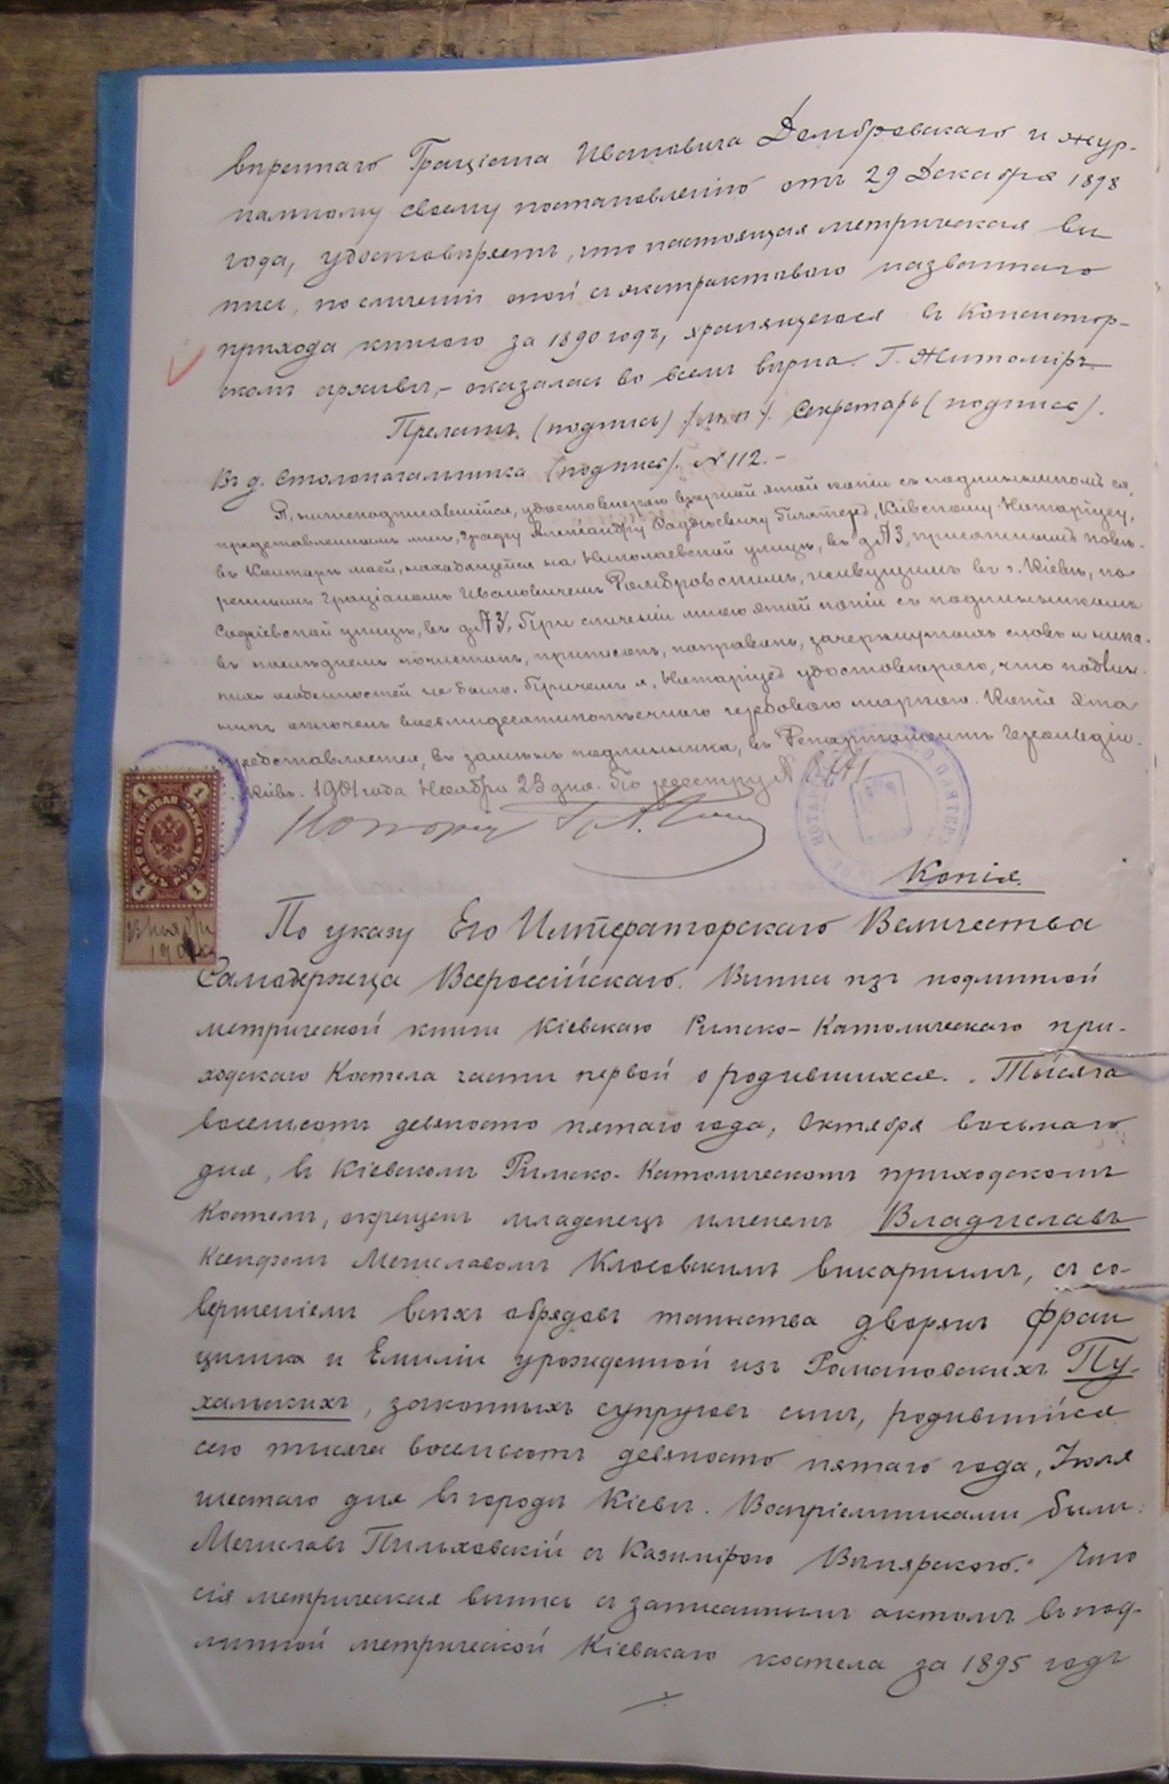 вѣреннаго Граціана Ивановича Домбровскаго и жур-
нальному своему постановленію отъ 29 Декабря 1898
года, удостовѣряетъ, что настоящая метрическая вы
пись, по сличеніи оной съ экстрактовою названнаго
прихода книгою за 1890 годъ, хранящеюся въ Консистор-
скомъ архивѣ,- оказалась во всемъ вѣрна. Г. Житомiръ
Прелатъ (подпись) /м.п./. Секретарь (подпись).
Въ д. Столоначальника (подпись). № 112.-
Я, нижеподписавшійся, удостовѣряю вѣрность этой копіи съ подлинникомъ ея,
представленнымъ мнѣ, Графу Александру Фаддѣевичу Плятеръ, Кіевскому Нотаріусу,
въ Конторѣ моей, находящейся на Николаевской улицѣ, въ д. № 3, присяжнымъ повѣ-
реннымъ Граціаномъ Ивановичемъ Домбровскимъ, живущимъ въ г. Кіевѣ, по
Софіевской улицѣ, въ д. № При сличеніи мною этой копіи съ подлинникомъ
въ послѣднемъ почистокъ, приписокъ, поправокъ, зачеркнутыхъ словъ и ника-
кихъ особенностей не было. Причемъ я, Нотаріусъ удостовѣряю, что подлин-
никъ оплоченъ восьмидесятикопѣечною гербовою маркою. Копія эта
представляется, въ замѣнъ подлинника, въ Департаментъ Герольдіи.
Кіевъ. 1901 года Ноября 23 дня. По реестру №
Нотаріусъ
1 ГЕРБОВАЯ МАРКА 1
1 ОДИНЪ РУБЛЬ 1
23 Ноября
190
Копія.
По указу Его Императорскаго Величества
Самодержца Всероссійскаго. Выпись изъ подлинной
метрической книги Кіевскаго Римско-Католическаго при-
ходскаго Костела части первой о родившихся. Тысяча
восемьсотъ девяносто пятаго года, Октября восьмаго
дня, въ Кіевскомъ Римско-Католическомъ приходскомъ
Костелѣ, окрещенъ младенецъ именемъ Владиславъ
Ксендзомъ Мечиславомъ Клосовскимъ викарнымъ, съ со-
вершеніемъ всѣхъ обрядовъ таинства дворянъ Фран
цишка и Емиліи урожденной изъ Романовскихъ Пу-
хальскихъ, законныхъ супруговъ сынъ, родившійся
сего тысяча восемьсотъ девяносто пятаго года, Іюля
шестаго дня въ городѣ Кіевѣ. Воспріемниками были:
Мечиславъ Пильховскій съ Казимірою Что
сія метрическая выпись съ записаннымъ актомъ въ под-
линной метрической Кіевскаго костела за 1895 годъ